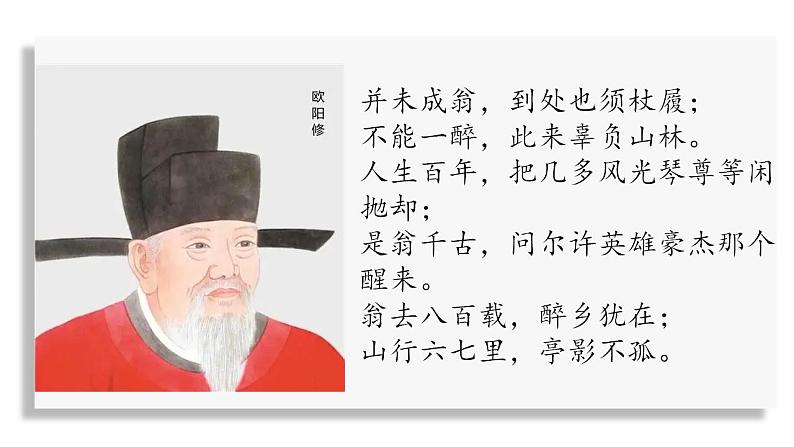 欧阳修
并未成翁，到处也须杖履；
不能一醉，此来辜负山林。
人生百年，把几多风光琴尊等闲
抛却；
是翁千古，问尔许英雄豪杰那个
醒来。
翁去八百载，醉乡犹在；
山行六七里，亭影不孤。